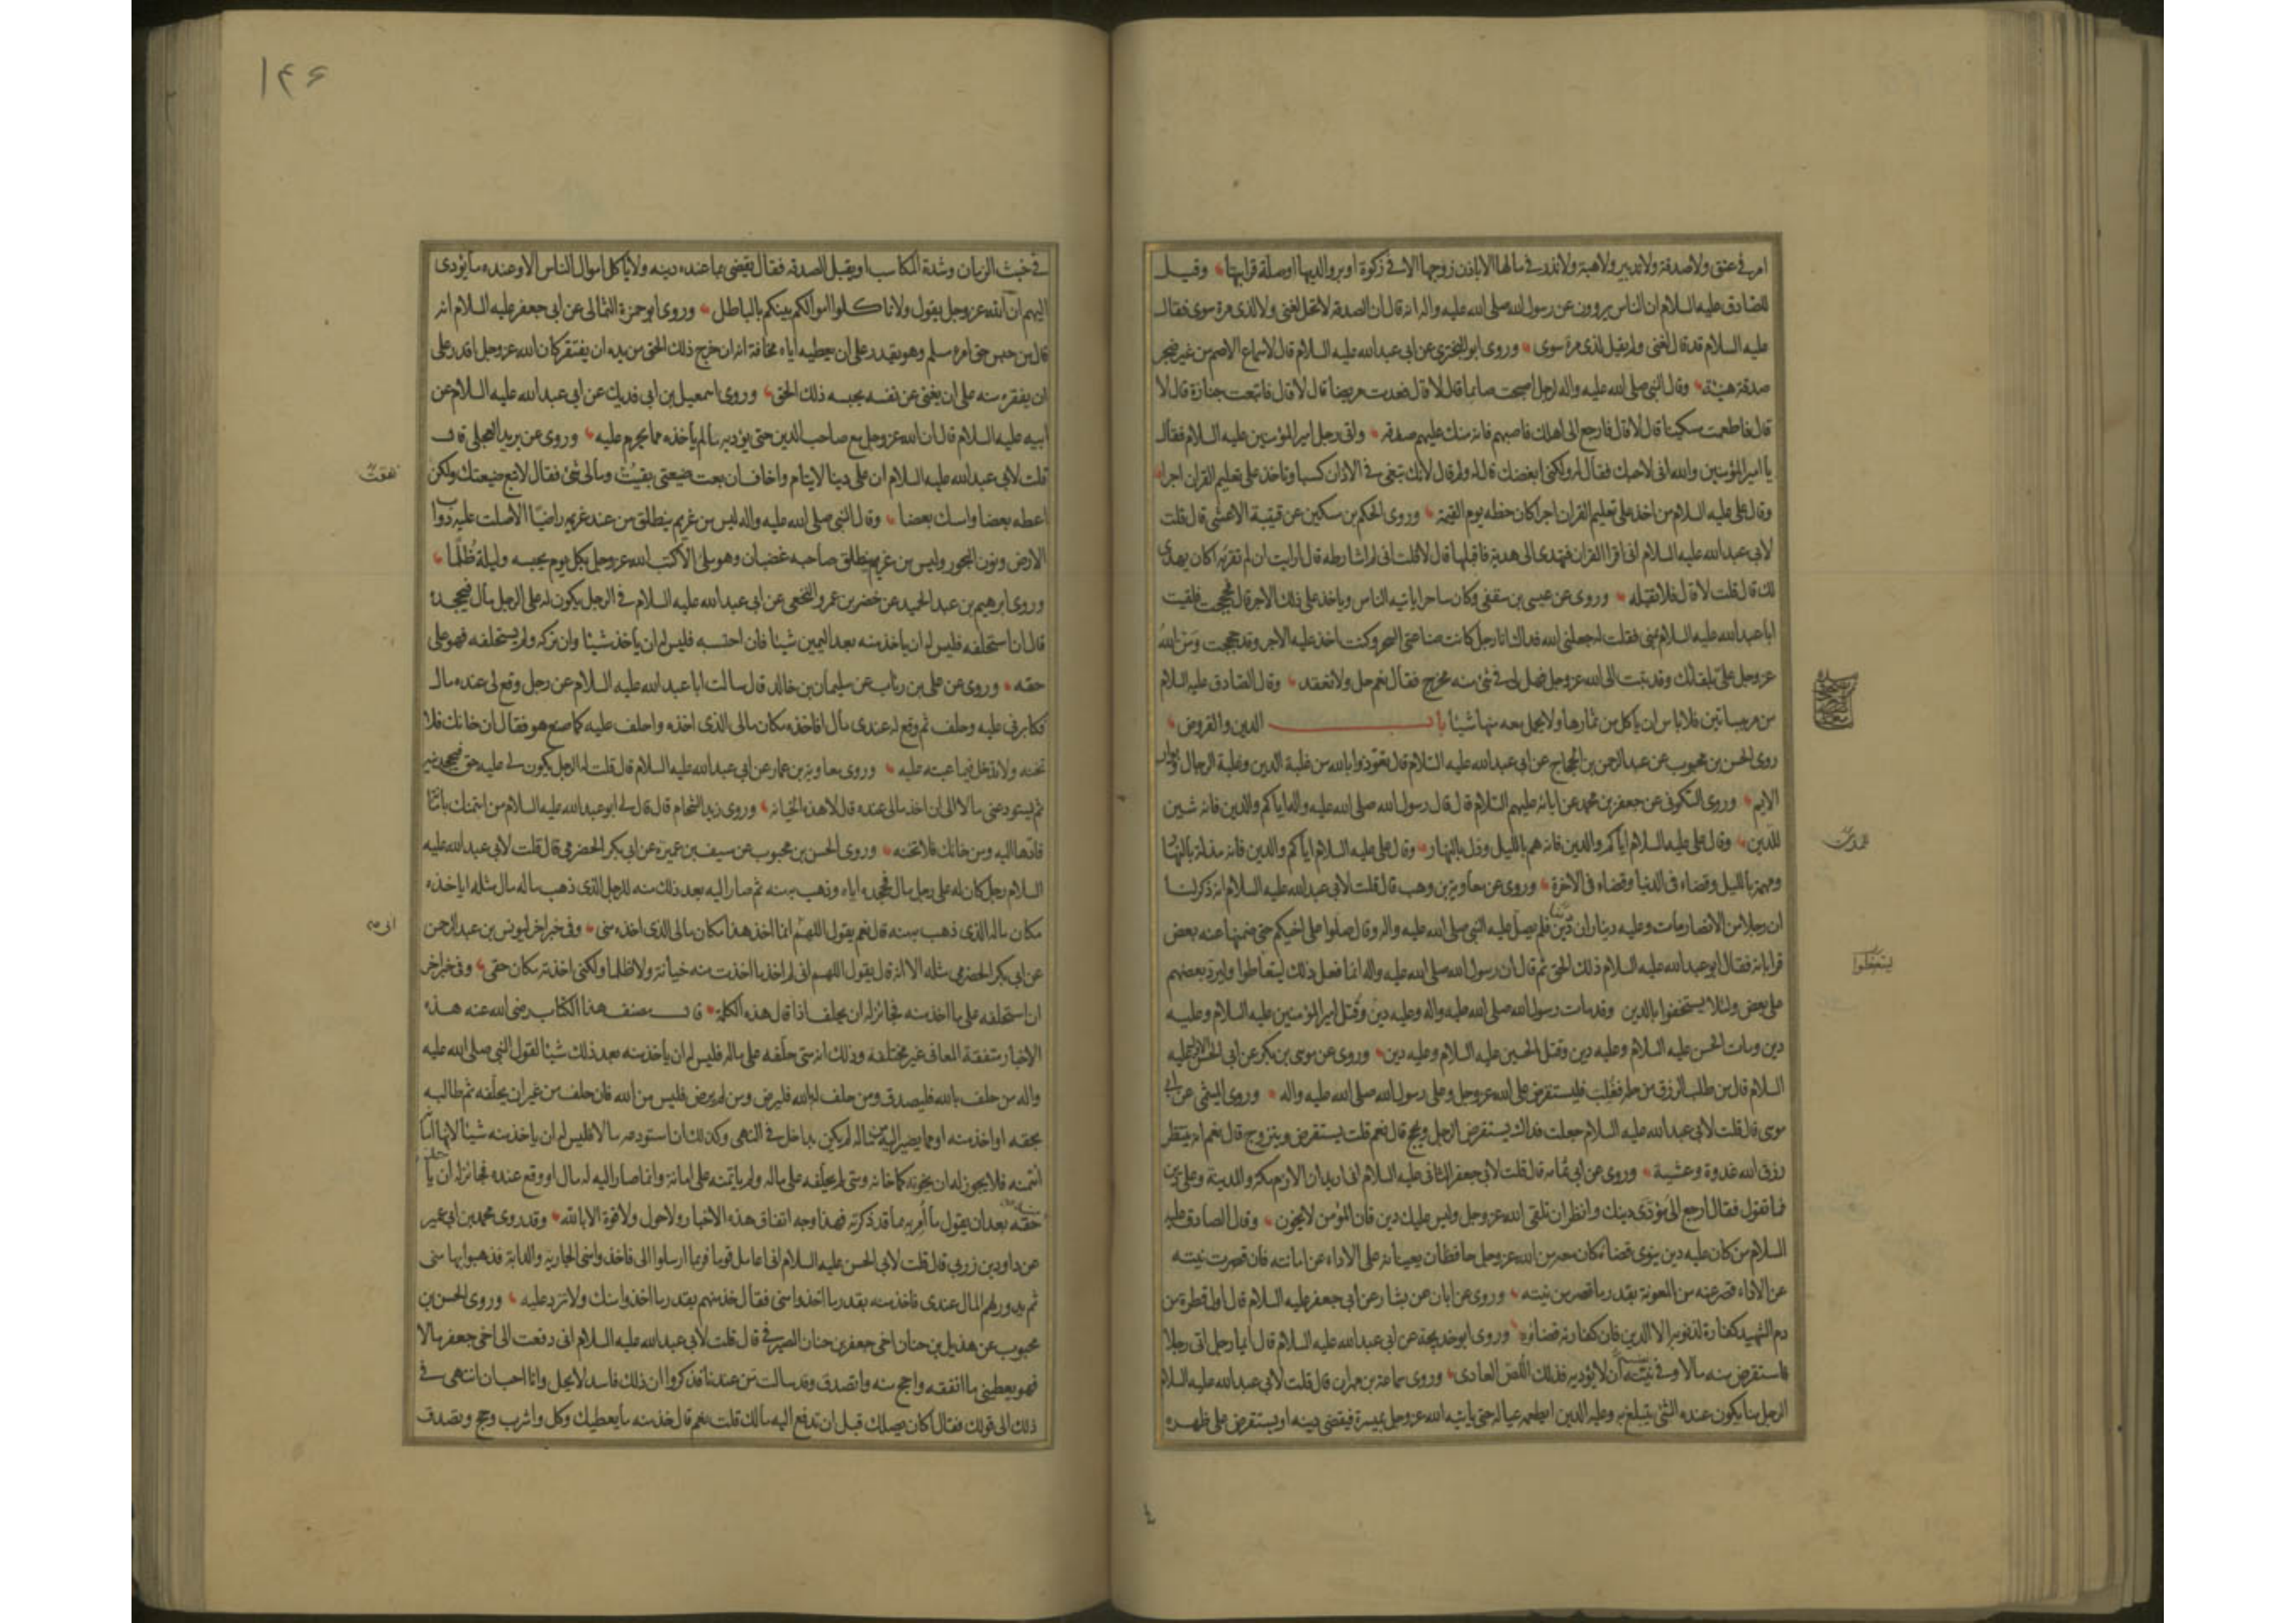 امر في عتق ولا صدقة ولا تدبير ولا هبة ولا نذر في مالها الا باذن زوجها الا في زكوة او بر والديها او صلة قرابتها وقيل
للصادق عليه السلام ان الناس يروون عن رسول الله صلى الله عليه واله انه قال ان الصدقة لا تحل لغني ولا لذي مرة سوي فقال
عليه السلام قد قال لغني ولم يقل لذي مرة سوي وروى ابو البختري عن ابي عبد الله عليه السلام قال لاسماع الاصم من غير ضجر
صدقة هنيئة وقال النبي صلى الله عليه واله لرجل اصبحت صائما قال لا قال فعدت مريضا قال لا قال فاتبعت جنازة قال لا
قال فاطعمت مسكينا قال لا قال فارجع الى اهلك فاصبهم فانه منك عليهم صدقة واتى رجل امير المؤمنين عليه السلام فقال
يا امير المؤمنين والله اني لاحبك فقال له ولكني ابغضك قال له ولم قال لانك تبغي في الاذان كسبا وتاخذ على تعليم القران اجرا
وقال علي عليه السلام من اخذ على تعليم القران اجرا كان حظه يوم القيمة وروى الحكم بن مسكين عن قتيبة الاعشى قال قلت
لابي عبد الله عليه السلام اني اقرا القران فتهدى الى هدية فاقبلها قال لا قلت اني لم اشارطه قال ارايت ان لم تقرئه اكان يهدي
لك قال قلت لا قال فلا تقبله وروى عن عيسى بن سقفي وكان ساحرا ياتيه الناس وياخذ على ذلك الاجر قال فحججت فلقيت
ابا عبد الله عليه السلام بمنى فقلت له جعلني الله فداك انا رجل كانت صناعتي السحر وكنت اخذ عليه الاجر وقد حججت ومن الله
عز وجل علي بلقائك وقد تبت الى الله عز وجل فهل لي في شئ منه مخرج فقال نعم حل ولا تعقد وقال الصادق عليه السلام
من مر ببساتين فلا باس ان ياكل من ثمارها ولا يحمل معه منها شيئا باب الدين والقروض
روى الحسن بن محبوب عن عبد الرحمن بن الحجاج عن ابي عبد الله عليه السلام قال تعوذوا بالله من غلبة الدين وغلبة الرجال وبوار
الايم وروى السكوني عن جعفر بن محمد عن ابائه عليهم السلام قال قال رسول الله صلى الله عليه واله اياكم والدين فانه شين
للدين وقال علي عليه السلام اياكم والدين فانه هم بالليل وذل بالنهار وقال علي عليه السلام اياكم والدين فانه مذلة بالنهار
ومهمة بالليل وقضاء في الدنيا وقضاء في الاخرة وروى عن معاوية بن وهب قال قلت لابي عبد الله عليه السلام انه ذكر لنا
ان رجلا من الانصار مات وعليه ديناران دين فلم يصل عليه النبي صلى الله عليه واله وقال صلوا على اخيكم حتى ضمنها عنه بعض
قراباته فقال ابو عبد الله عليه السلام ذلك الحق ثم قال ان رسول الله صلى الله عليه واله انما فعل ذلك ليتعاطوا وليرد بعضهم
على بعض ولئلا يستخفوا بالدين وقد مات رسول الله صلى الله عليه واله وعليه دين وقتل امير المؤمنين عليه السلام وعليه
دين ومات الحسن عليه السلام وعليه دين وقتل الحسين عليه السلام وعليه دين وروى عن موسى بن بكر عن ابي الحسن الاول عليه
السلام قال من طلب الرزق من حله فغلب فليستقرض على الله عز وجل وعلى رسول الله صلى الله عليه واله وروى الميثمي عن ابي
موسى قال قلت لابي عبد الله عليه السلام جعلت فداك يستقرض الرجل ويحج قال نعم قلت يستقرض ويتزوج قال نعم انه ينتظر
رزق الله غدوة وعشية وروى عن ابي ثمامه قال قلت لابي جعفر الثاني عليه السلام اني اريد ان الازم مكة والمدينة وعلي دين
فما تقول فقال ارجع الى مؤدى دينك وانظر ان تلقى الله عز وجل وليس عليك دين فان المؤمن لا يخون وقال الصادق عليه
السلام من كان عليه دين ينوي قضائه كان معه من الله عز وجل حافظان يعينانه على الاداء عن امانته فان قصرت نيته
عن الاداء قصر عنه من المعونة بقدر ما قصر من نيته وروى عن ابان عن بشار عن ابي جعفر عليه السلام قال اول قطرة من
دم الشهيد كفارة لذنوبه الا الدين فان كفارته قضاؤه وروى ابو خديجة عن ابي عبد الله عليه السلام قال ايما رجل اتى رجلا
فاستقرض منه مالا وفي نيته ان لا يؤديه فذلك اللص العادي وروى سماعة بن مهران قال قلت لابي عبد الله عليه السلام
الرجل منا يكون عنده الشئ يتبلغ به وعليه الدين ايطعمه عياله حتى ياتيه الله عز وجل بميسرة فيقضي دينه او يستقرض على ظهره
يتعظوا
١٤۶
في خبث الزمان وشدة المكاسب او يقبل الصدقة فقال يقضي بما عنده دينه ولا ياكل اموال الناس الا وعنده ما يؤدى
اليهم ان الله عز وجل يقول ولا تاكلوا اموالكم بينكم بالباطل وروى ابو حمزة الثمالي عن ابي جعفر عليه السلام انه
قال من حبس حق امرء مسلم وهو يقدر على ان يعطيه اياه مخافة انه ان خرج ذلك الحق من يده ان يفتقر كان الله عز وجل اقدر على
ان يفقره منه على ان يغني عن نفسه بحبسه ذلك الحق وروى اسمعيل بن ابي فديك عن ابي عبد الله عليه السلام عن
ابيه عليه السلام قال ان الله عز وجل مع صاحب الدين حتى يؤديه ما لم ياخذه مما يحرم عليه وروى عن بريد العجلي قال
قلت لابي عبد الله عليه السلام ان علي دينا لايتام واخاف ان بعت ضيعتي بقيت وما لي شئ فقال لا تبع ضيعتك ولكن
اعطه بعضا وامسك بعضا وقال النبي صلى الله عليه واله ليس من غريم ينطلق من عند غريمه راضيا الا صلت عليه دواب
الارض ونون البحور وليس من غريم ينطلق صاحبه غضبان وهو ملي الا كتب الله عز وجل بكل يوم يحبسه وليلة ظلما
وروى ابرهيم بن عبد الحميد عن خضر بن عمرو النخعي عن ابي عبد الله عليه السلام في الرجل يكون له على الرجل مال فيجحده
قال ان استحلفه فليس له ان ياخذ منه بعد اليمين شيئا فان احتسبه فليس له ان ياخذ شيئا وان تركه ولم يستحلفه فهو على
حقه وروى عن علي بن رئاب عن سليمان بن خالد قال سالت ابا عبد الله عليه السلام عن رجل وقع لي عنده مال
فكابرني عليه وحلف ثم وقع له عندي مال افاخذه مكان مالي الذي اخذه واحلف عليه كما صنع هو فقال ان خانك فلا
تخنه ولا تدخل فيما عبته عليه وروى معاوية بن عمار عن ابي عبد الله عليه السلام قال قلت له الرجل يكون لي عليه حق فيجحدنيه
ثم يستودعني مالا الي ان اخذ مالي عنده قال لا هذه الخيانة وروى زيد الشحام قال قال لي ابو عبد الله عليه السلام من ائتمنك بامانة
فادها اليه ومن خانك فلا تخنه وروى الحسن بن محبوب عن سيف بن عميرة عن ابي بكر الحضرمي قال قلت لابي عبد الله عليه
السلام رجل كان له على رجل مال فجحده اياه وذهب به منه ثم صار اليه بعد ذلك منه للرجل الذي ذهب بماله مال مثله اياخذه
مكان ماله الذي ذهب به منه قال نعم يقول اللهم انما اخذ هذا مكان مالي الذي اخذه مني وفي خبر اخر ليونس بن عبد الرحمن
عن ابي بكر الحضرمي مثله الا انه قال يقول اللهم اني لم اخذ ما اخذت منه خيانة ولا ظلما ولكني اخذته مكان حقي وفي خبر اخر
ان استحلفه على ما اخذ منه فجائز له ان يحلف اذا قال هذه الكلمة قال مصنف هذا الكتاب رضي الله عنه هذه
الاخبار متفقة المعاني غير مختلفة وذلك انه متى حلفه على ماله فليس له ان ياخذ منه بعد ذلك شيئا لقول النبي صلى الله عليه
واله من حلف بالله فليصدق ومن حلف له بالله فليرض ومن لم يرض فليس من الله فان حلف من غير ان يحلفه ثم طالبه
بحقه او اخذ منه او مما يصير اليه من ماله لم يكن بداخل في النهي وكذلك ان استودعه مالا فليس له ان ياخذ منه شيئا لانها امانة
ائتمنه فلا يجوز له ان يخونه كما خانه ومتى لم يحلفه على ماله ولم ياتمنه على امانة وانما صار اليه له مال او وقع عنده فجائز له ان ياخذ
حقه بعد ان يقول ما امر به مما قد ذكرته فهذا وجه اتفاق هذه الاخبار ولا حول ولا قوة الا بالله وقد روى محمد بن ابي عمير
عن داود بن زربي قال قلت لابي الحسن عليه السلام اني اعامل قوما فربما ارسلوا الي فاخذوا مني الجارية والدابة فذهبوا بها مني
ثم يدور لهم المال عندي فاخذ منه بقدر ما اخذوا مني فقال خذ منهم بقدر ما اخذوا منك ولا تزد عليه وروى الحسن بن
محبوب عن هذيل بن حنان اخي جعفر بن حنان الصيرفي قال قلت لابي عبد الله عليه السلام اني دفعت الى اخي جعفر مالا
فهو يعطيني ما انفقه واحج منه واتصدق وقد سالت من عندنا فذكروا ان ذلك فاسد لا يحل وانا احب ان انتهي في
ذلك الى قولك فقال اكان يصلك قبل ان تدفع اليه مالك قلت نعم قال خذ منه ما يعطيك وكل واشرب وحج وتصدق